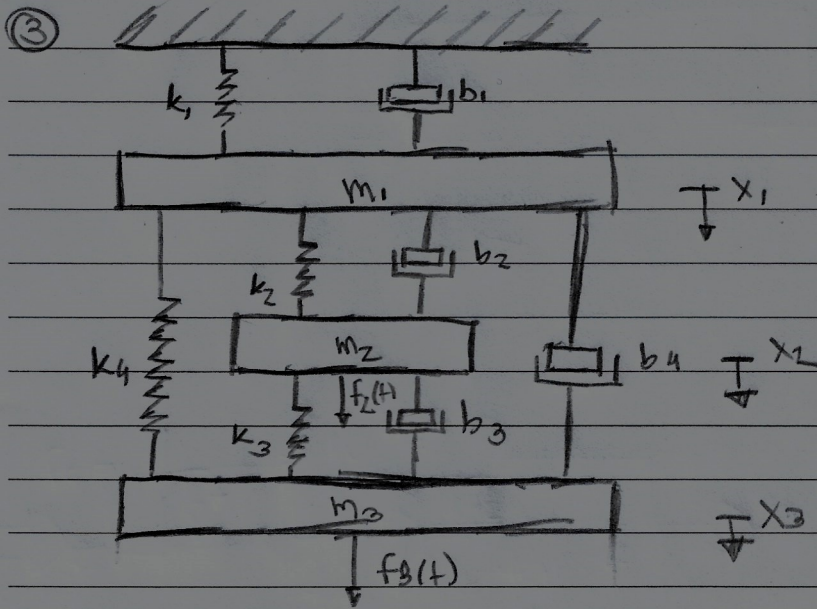 ③
k₁
b₁
m₁
x₁
k₂
b₂
m₂
x₂
k₄
b₄
f₂(t)
k₃
b₃
m₃
x₃
f₃(t)